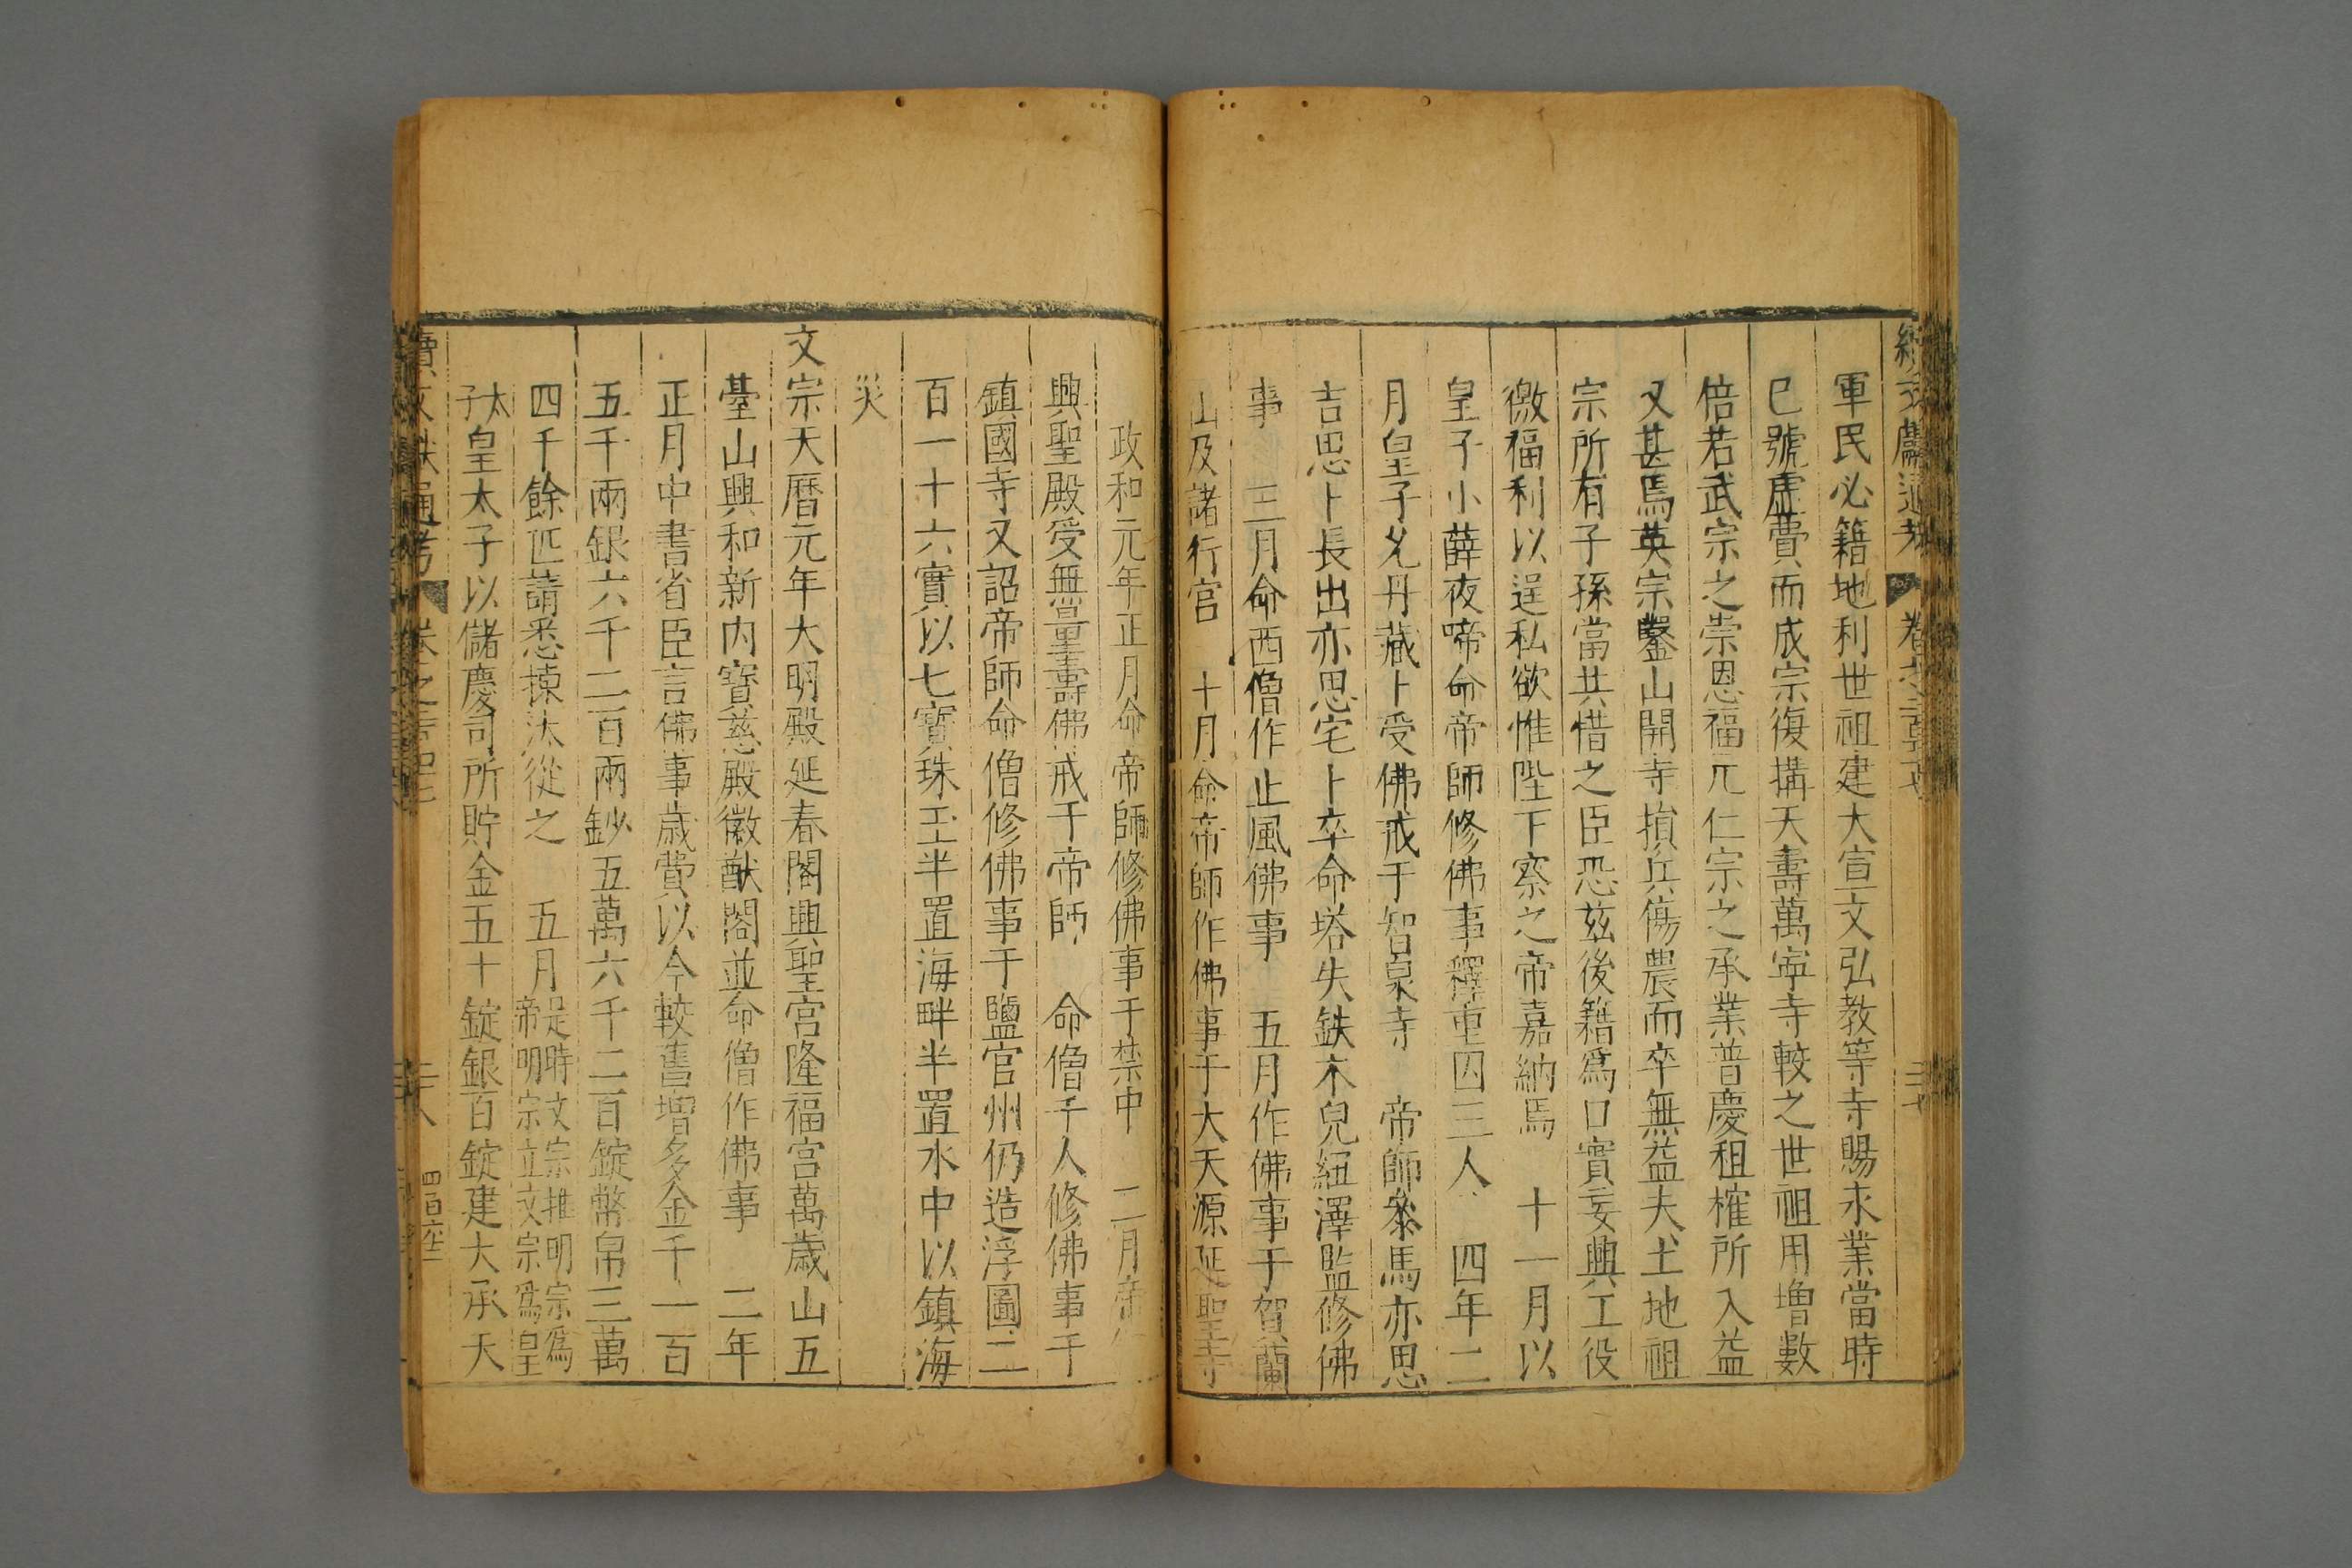 續文獻通考
軍民必籍地利世祖建大宣文弘教等寺賜永業當時
已號虛費而成宗復搆天壽萬寧寺較之世祖用增數
倍若武宗之崇恩福元仁宗之承業普慶租榷所入益
又甚焉英宗鑿山開寺損兵傷農而卒無益夫土地祖
宗所有子孫當共惜之臣恐茲後籍爲口實妄興工役
徼福利以逞私欲惟陛下察之帝嘉納焉 十一月以
皇子小薛夜啼命帝師修佛事釋重囚三人 四年二
月皇子允丹藏卜受佛戒于智泉寺 帝師參馬亦思
吉思卜長出亦思宅卜卒命塔失鉄木兒紐澤監修佛
事 三月命西僧作止風佛事 五月作佛事于賀蘭
山及諸行宮 十月命帝師作佛事于大天源延聖寺
政和元年正月命帝師修佛事于禁中 二月帝
興聖殿受無量壽佛戒于帝師 命僧千人修佛事于
鎮國寺又詔帝師命僧修佛事于鹽官州仍造浮圖二
百一十六實以七寶珠玉半置海畔半置水中以鎮海
災
文宗天曆元年大明殿延春閣興聖宮隆福宮萬歲山五
臺山興和新内寶慈殿徽猷閣並命僧作佛事 二年
正月中書省臣言佛事歲費以今較舊增多金千一百
五千兩銀六千二百兩鈔五萬六千二百錠幣帛三萬
四千餘匹請悉揀汰從之 五月是時文宗推明宗爲
帝明宗立文宗爲皇
太
子皇太子以儲慶司所貯金五十錠銀百錠建大承天
續文獻通考
二十八
四百六十二